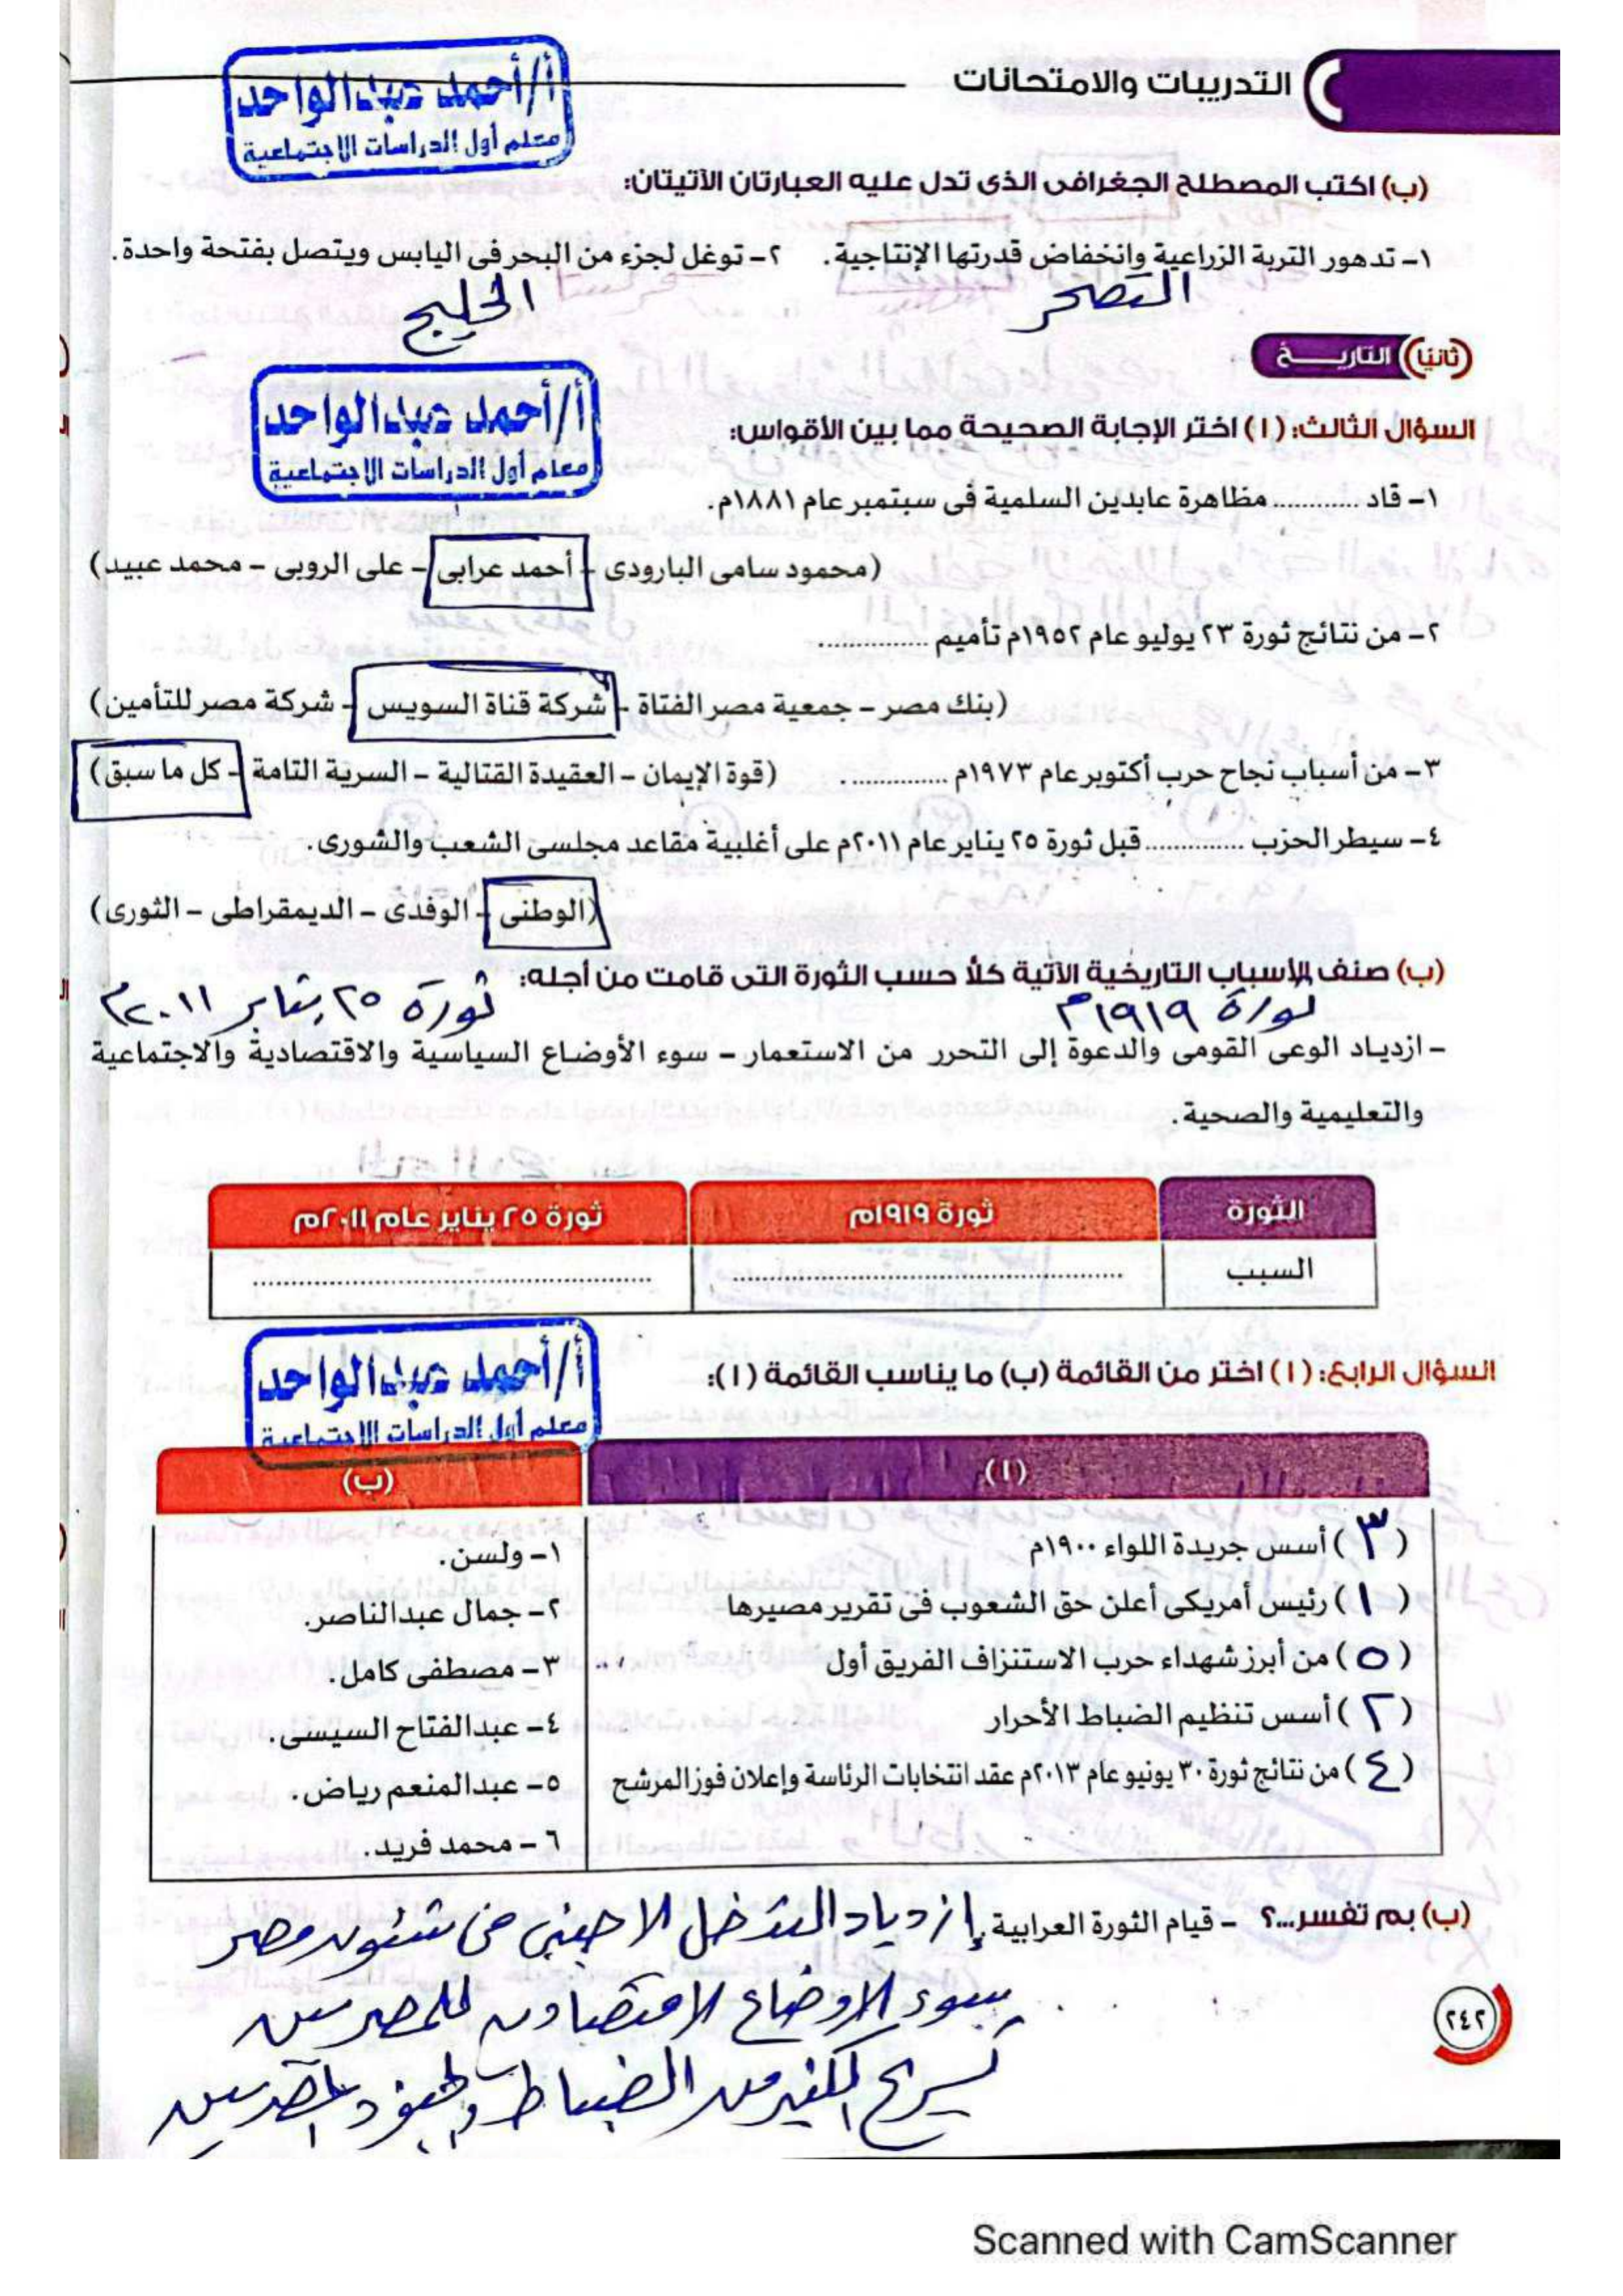 التدريبات والامتحانات
أ/أحمد عبدالواحد
معلم أول الدراسات الاجتماعية
(ب) اكتب المصطلح الجغرافى الذى تدل عليه العبارتان الآتيتان:
١- تدهور التربة الزراعية وانخفاض قدرتها الإنتاجية. ٢- توغل لجزء من البحر فى اليابس ويتصل بفتحة واحدة.
التصحر الخليج
(ثانيًا) التاريخ
أ/أحمد عبدالواحد
معلم أول الدراسات الاجتماعية
السؤال الثالث: (١) اختر الإجابة الصحيحة مما بين الأقواس:
١- قاد ............ مظاهرة عابدين السلمية فى سبتمبر عام ١٨٨١م.
(محمود سامى البارودى - أحمد عرابى - على الروبى - محمد عبيد)
٢- من نتائج ثورة ٢٣ يوليو عام ١٩٥٢م تأميم ..............
(بنك مصر - جمعية مصر الفتاة - شركة قناة السويس - شركة مصر للتأمين)
٣- من أسباب نجاح حرب أكتوبر عام ١٩٧٣م .............. (قوة الإيمان - العقيدة القتالية - السرية التامة - كل ما سبق)
٤- سيطر الحزب .............. قبل ثورة ٢٥ يناير عام ٢٠١١م على أغلبية مقاعد مجلسى الشعب والشورى.
(الوطنى - الوفدى - الديمقراطى - الثورى)
(ب) صنف الأسباب التاريخية الآتية كلاً حسب الثورة التى قامت من أجله:
ثورة ١٩١٩م ثورة ٢٥ يناير ٢٠١١م
- ازدياد الوعى القومى والدعوة إلى التحرر من الاستعمار - سوء الأوضاع السياسية والاقتصادية والاجتماعية
والتعليمية والصحية.
الثورة ثورة ١٩١٩م ثورة ٢٥ يناير عام ٢٠١١م
السبب .................... ....................
أ/أحمد عبدالواحد
معلم أول الدراسات الاجتماعية
السؤال الرابع: (١) اختر من القائمة (ب) ما يناسب القائمة (١):
(١) (ب)
(٣) أسس جريدة اللواء ١٩٠٠م ١- ولسن.
(١) رئيس أمريكى أعلن حق الشعوب فى تقرير مصيرها ٢- جمال عبدالناصر.
(٥) من أبرز شهداء حرب الاستنزاف الفريق أول ٣- مصطفى كامل.
(٢) أسس تنظيم الضباط الأحرار ٤- عبدالفتاح السيسى.
(٤) من نتائج ثورة ٣٠ يونيو عام ٢٠١٣م عقد انتخابات الرئاسة وإعلان فوز المرشح ٥- عبدالمنعم رياض.
٦- محمد فريد.
(ب) بم تفسر...؟ - قيام الثورة العرابية. إزدياد التدخل الاجنبى فى شئون مصر
سوء الاوضاع الاقتصادية للمصريين
تسريح الكثير من الضباط والجنود المصريين
٢٤٢
Scanned with CamScanner